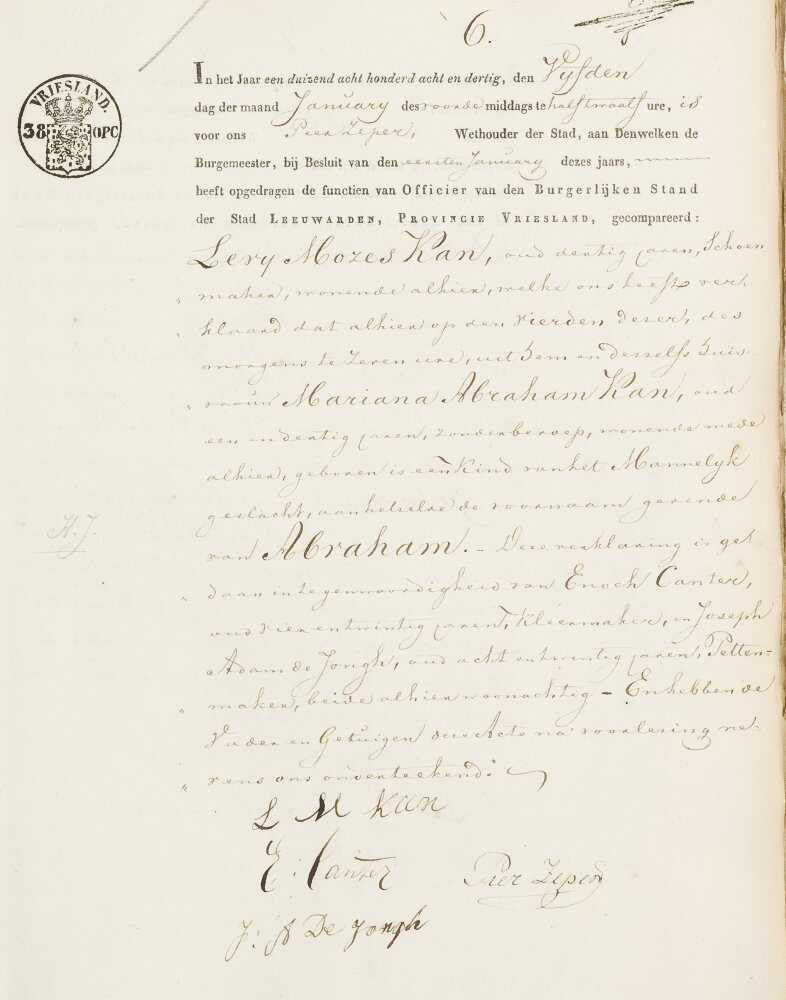 6.
VRIESLAND.
38 OPC
In het Jaar een duizend acht honderd acht en dertig, den Vyfden
dag der maand January des voorde middags te half twaalf ure, is
voor ons Pier Zeper, Wethouder der Stad, aan Denwelken de
Burgemeester, bij Besluit van den eersten January dezes jaars,
heeft opgedragen de functien van Officier van den Burgerlijken Stand
der Stad LEEUWARDEN, PROVINCIE VRIESLAND, gecompareerd:
Levy Mozes Kan, oud dertig jaren, Schoen
maker, wonende alhier, welke ons heeft ver,
klaard dat alhier op den vierden dezer, des
morgens te zeven ure, uit hem en deszelfs huis
vrouw Mariana Abraham Kan, oud
een en dertig jaren, zonder beroep, wonende mede
alhier, geboren is een kind van het Mannelyk
geslacht, aan hetzelve de voornaam gevende
van Abraham. – Deze verklaring is ge,
H. J.
daan in tegenwoordigheid van Enoch Canter,
oud vier en twintig jaren, Kleermaker, en Joseph
Adam de Jongh, oud acht en twintig jaren, Petten=
maker, beide alhier woonachtig – En hebben de
Vader en Getuigen deze Acte na voorlezing ne-
vens ons onderteekend.
L M Kan
E. Canter
Pier Zeper
J: A De Jongh